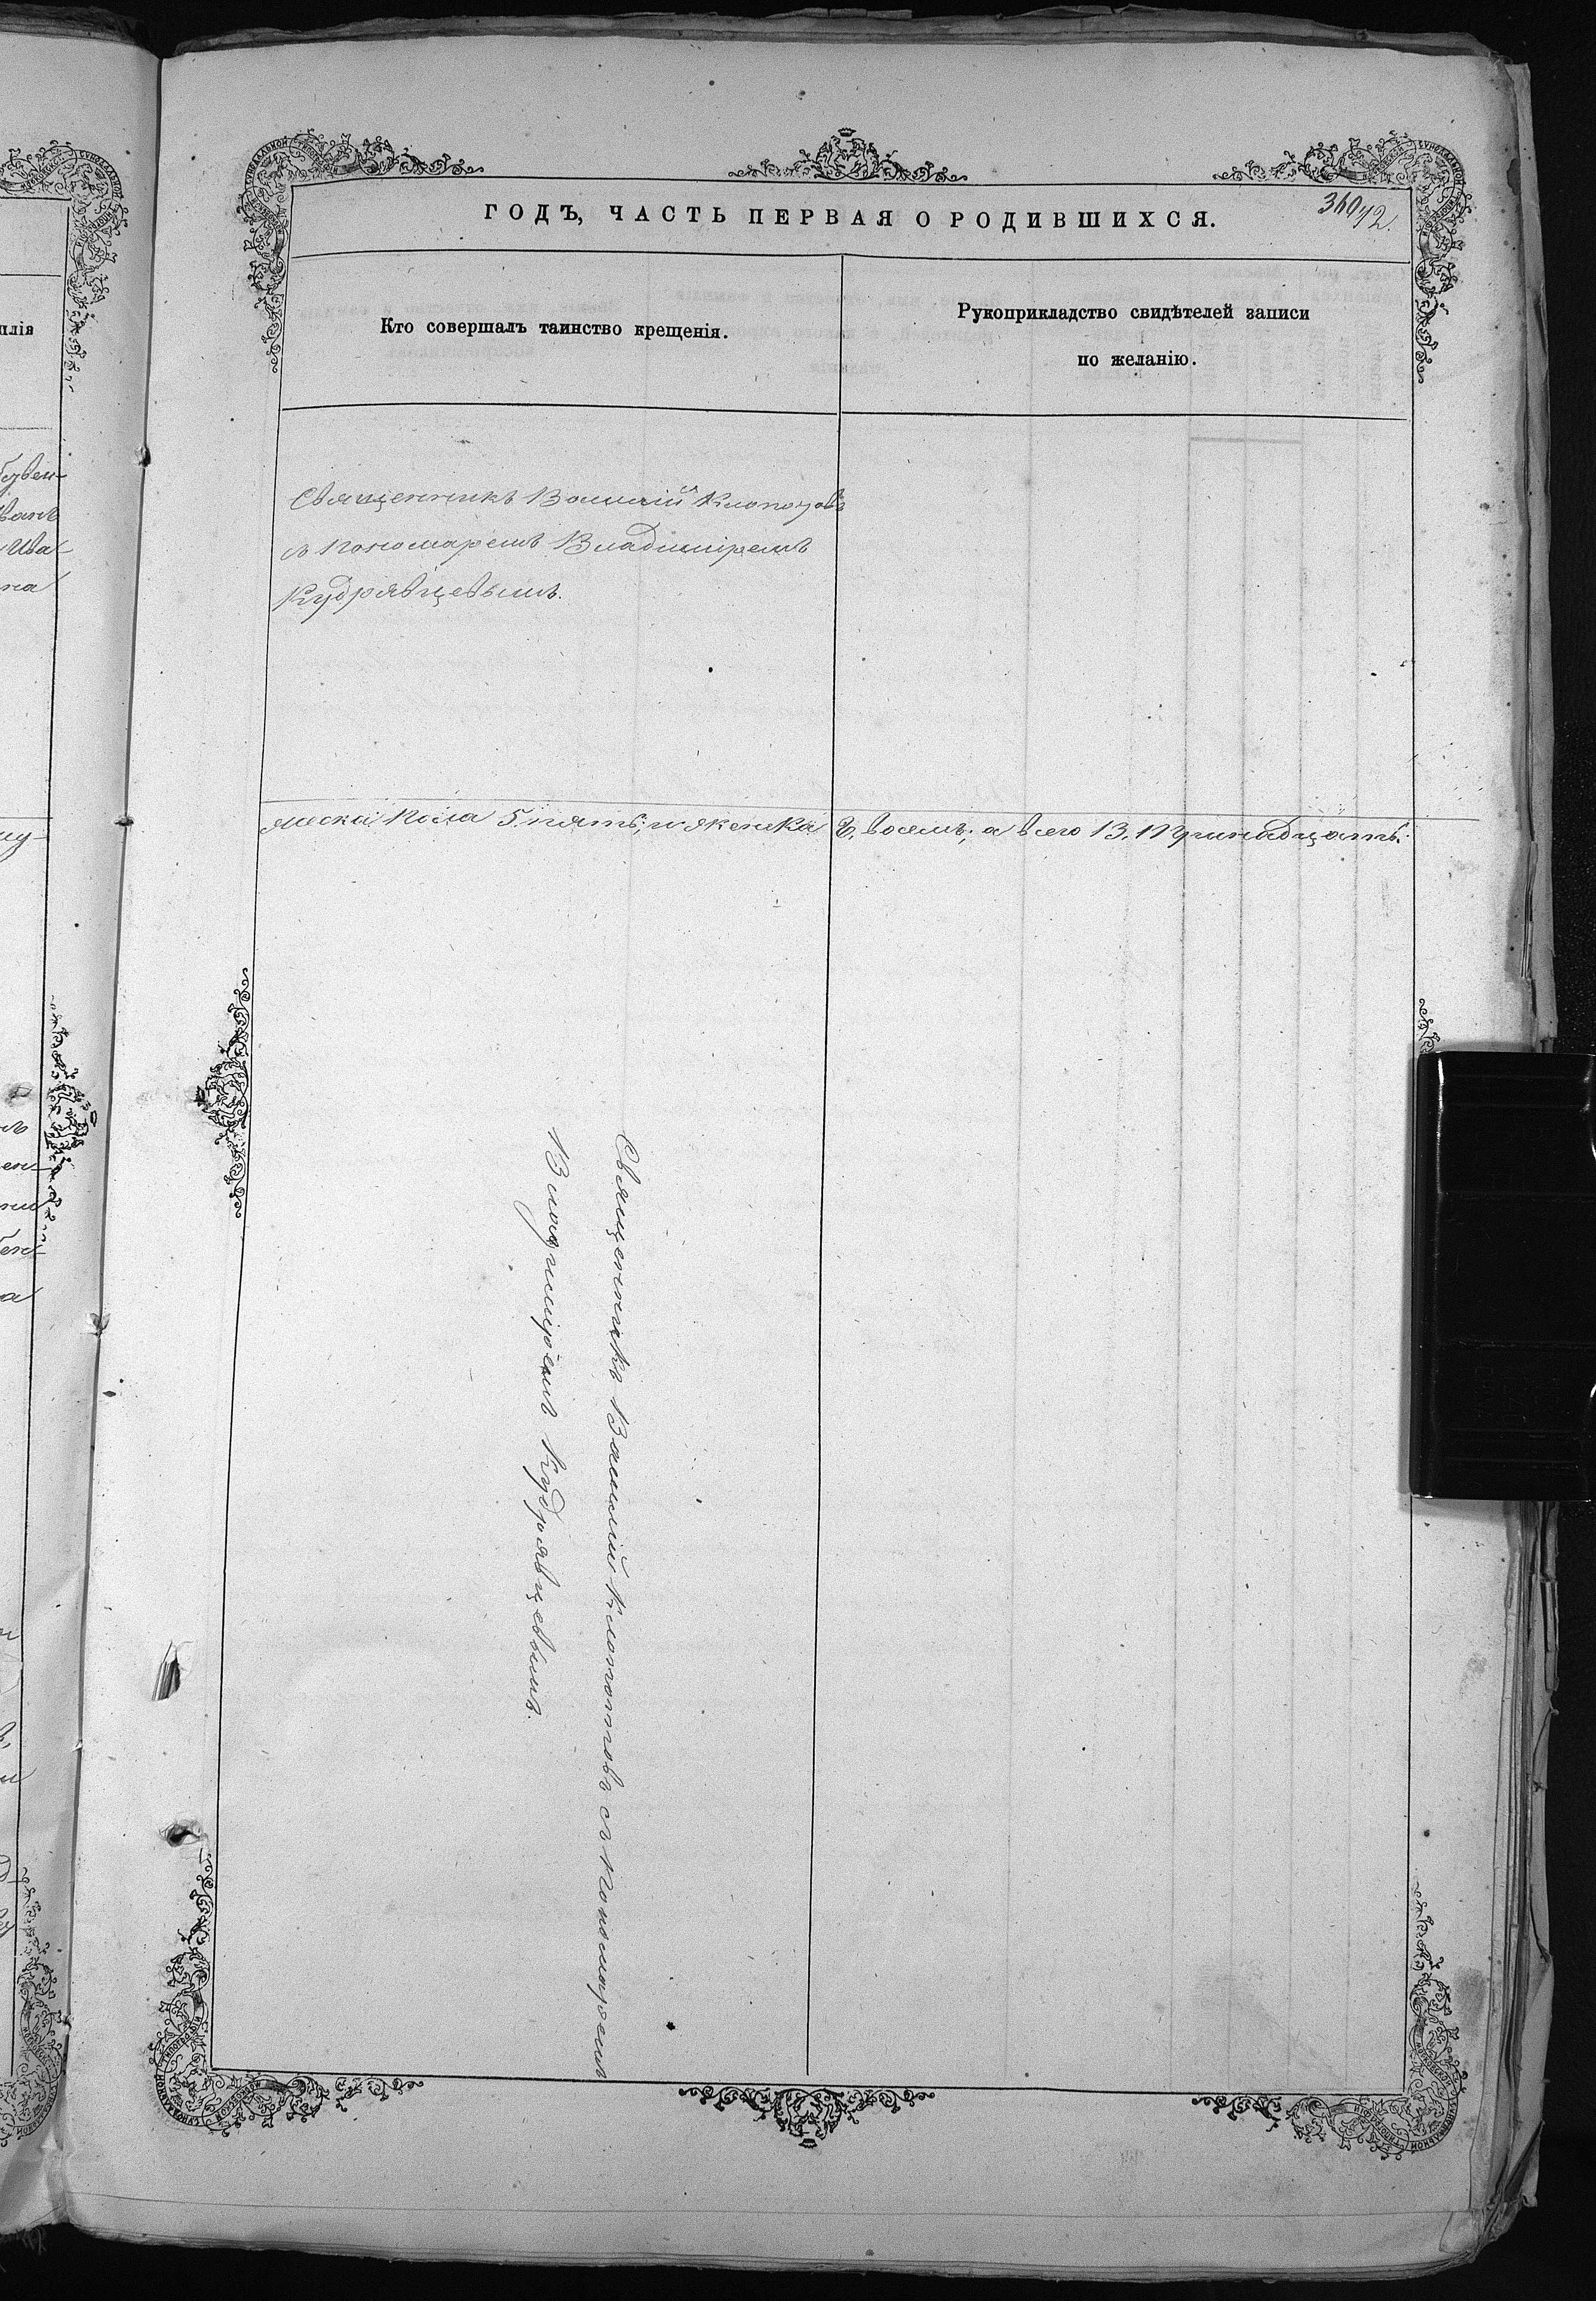 ГОДЪ, ЧАСТЬ ПЕРВАЯ О РОДИВШИХСЯ.
Кто совершалъ таинство крещенія.
Рукоприкладство свидѣтелей записи
по желанію.
Священникъ Василій Клопотовъ
съ Пономаремъ Владиміремъ
Кудрявцевымъ.
мужска пола 5. пять; и женска 8, восемь; а всего 13. Тринадцать.
Священникъ Василій Клопотовъ съ Пономаремъ
Владиміремъ Кудрявцевымъ.